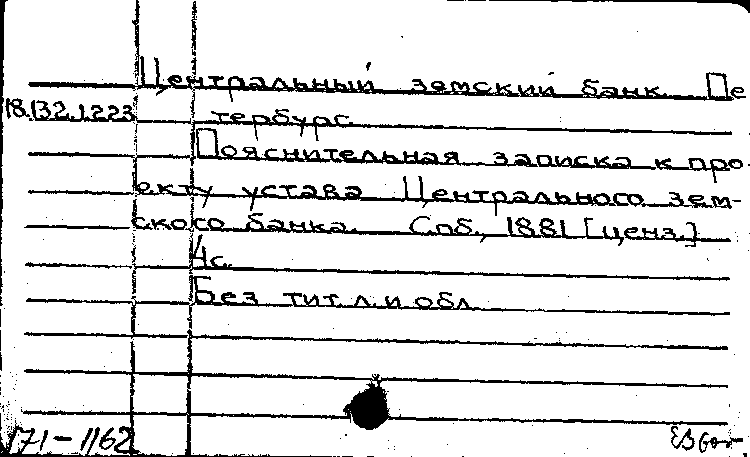 Центральный земский банк. Пе
18.132.1.223 тербург.
Пояснительная записка к про-
екту устава Центрального зем-
ского банка. Спб., 1881 [ценз.]
4 с.
Без тит. л. и обл.
171-1162